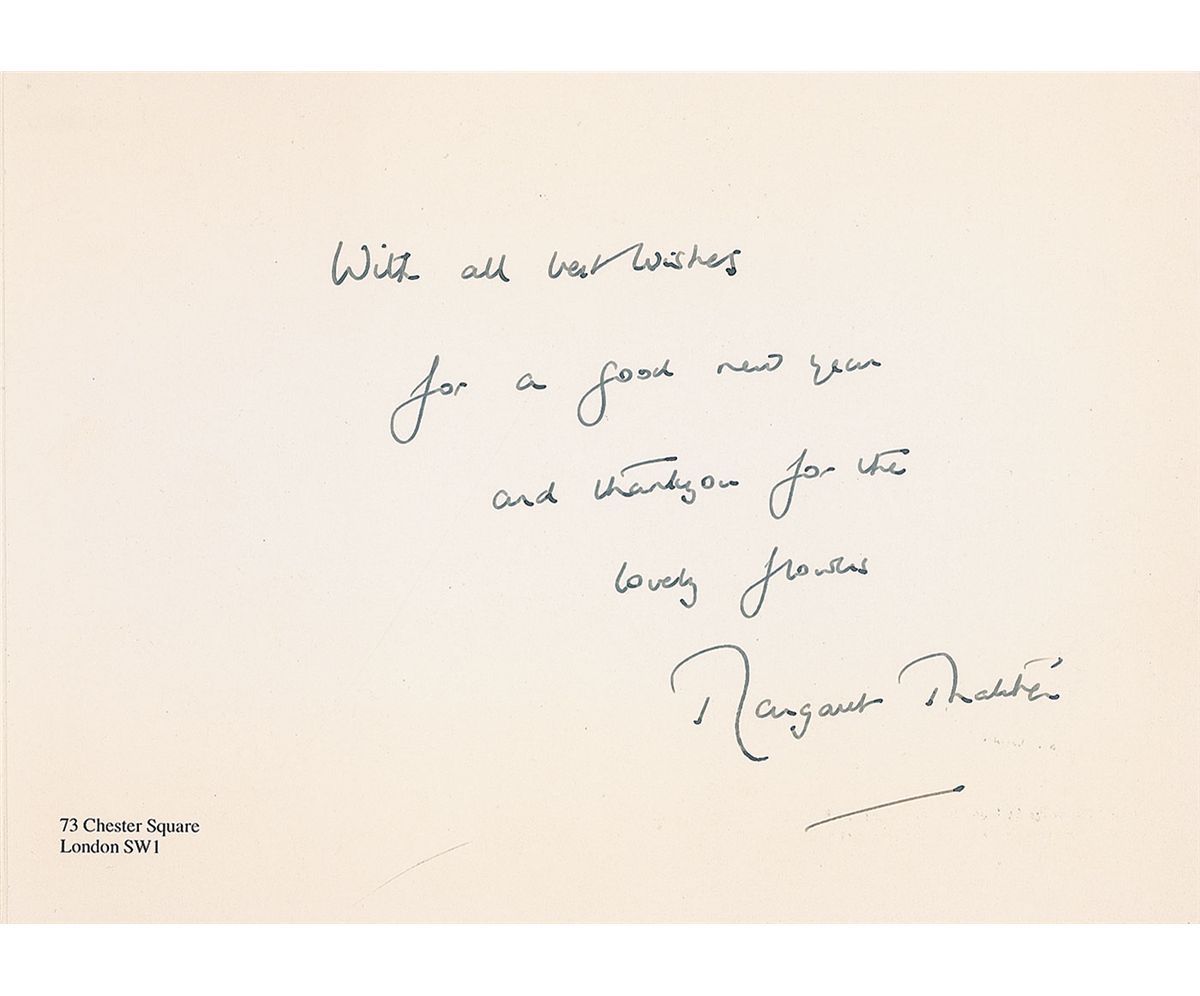 With all best wishes
for a good new year
and thankyou for the
lovely flowers
Margaret Thatcher
73 Chester Square
London SW1